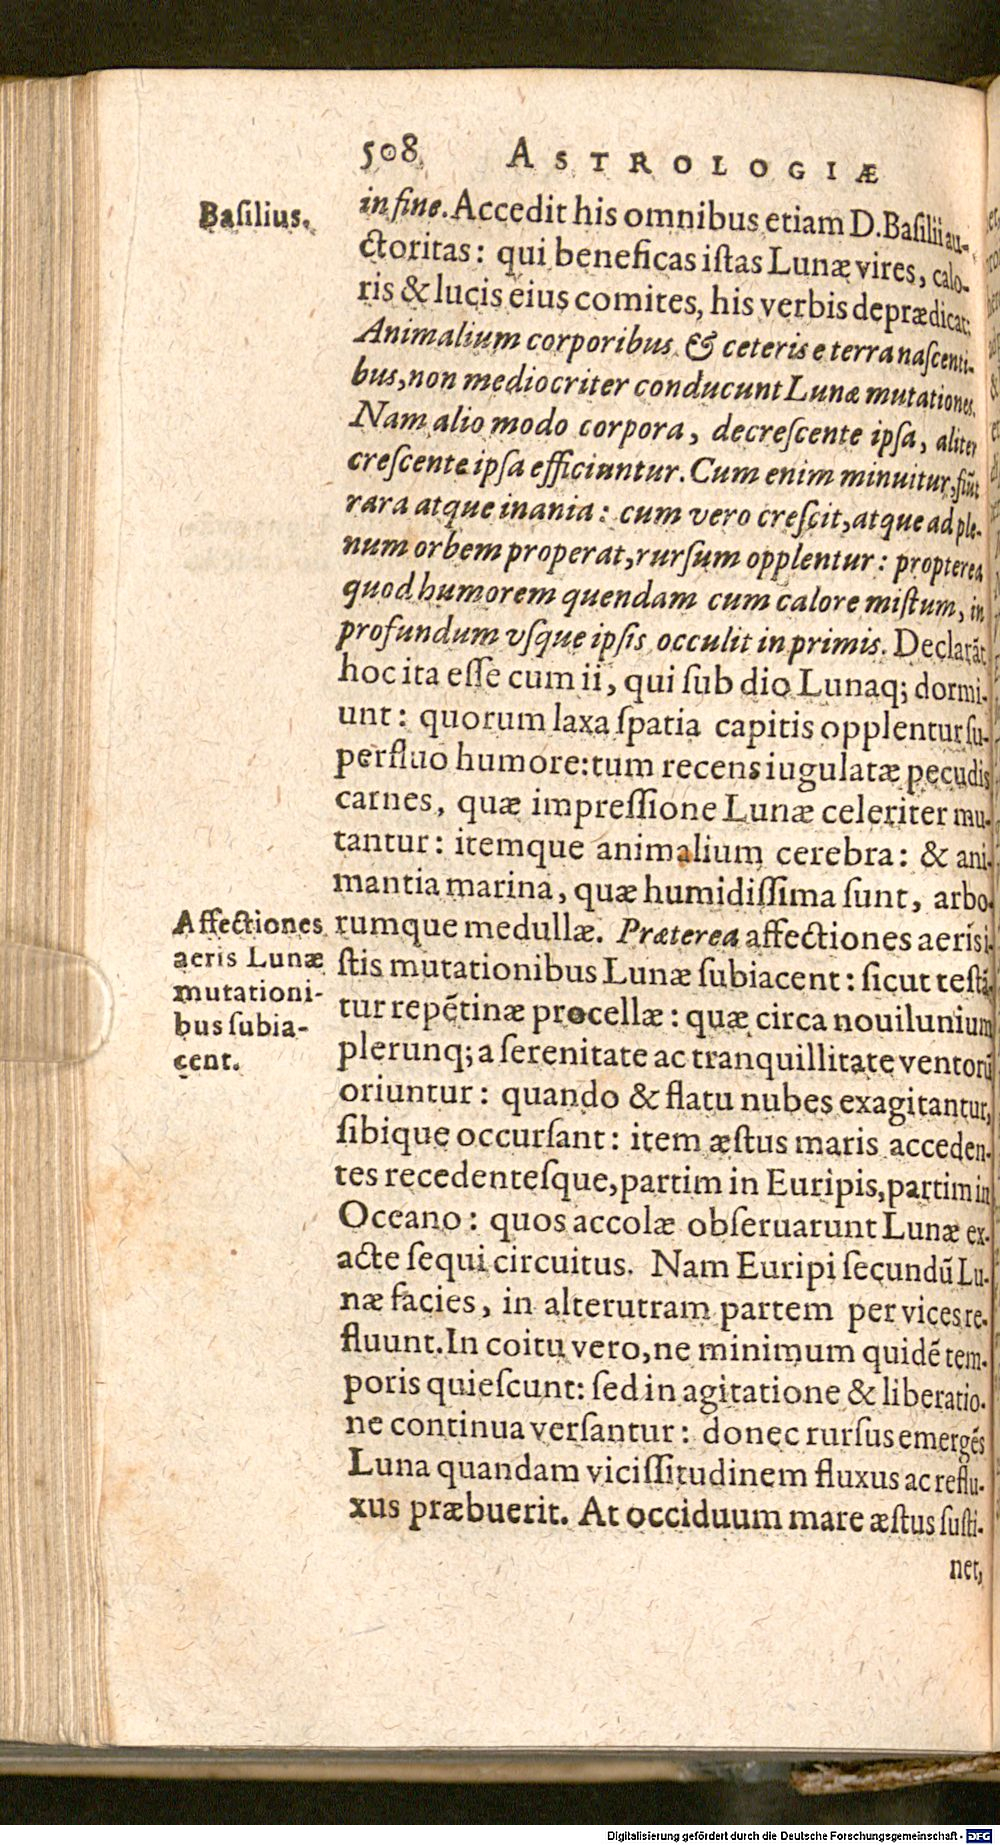 508 ASTROLOGIÆ
Baſilius.
in fine. Accedit his omnibus etiam D. Baſilii au-
ctoritas: qui beneficas iſtas Lunæ vires, calo-
ris & lucis eius comites, his verbis deprædicat:
Animalium corporibus & ceteris e terra naſcenti-
bus, non mediocriter conducunt Lunæ mutationes.
Nam alio modo corpora, decreſcente ipſa, aliter
creſcente ipſa efficiuntur. Cum enim minuitur, fiũt
rara atque inania: cum vero creſcit, atque ad ple-
num orbem properat, rurſum opplentur: propterea
quod humorem quendam cum calore miſtum, in
profundum vſque ipſis occulit in primis. Declarãt
hoc ita eſſe cum ii, qui ſub dio Lunaq; dormi-
unt: quorum laxa ſpatia capitis opplentur ſu-
perfluo humore: tum recens iugulatæ pecudis
carnes, quæ impreſſione Lunæ celeriter mu-
tantur: itemque animalium cerebra: & ani-
mantia marina, quæ humidiſſima ſunt, arbo-
rumque medullæ. Præterea affectiones aeris i-
ſtis mutationibus Lunæ ſubiacent: ſicut teſtã-
tur repẽtinæ procellæ: quæ circa nouilunium
plerunq; a ſerenitate ac tranquillitate ventorũ
oriuntur: quando & flatu nubes exagitantur,
ſibique occurſant: item æſtus maris acceden-
tes recedenteſque, partim in Euripis, partim in
Oceano: quos accolæ obſeruarunt Lunæ ex-
acte ſequi circuitus. Nam Euripi ſecundũ Lu-
næ facies, in alterutram partem per vices re-
fluunt. In coitu vero, ne minimum quidẽ tem-
poris quieſcunt: ſed in agitatione & liberatio-
ne continua verſantur: donec rurſus emergẽs
Luna quandam viciſſitudinem fluxus ac reflu-
xus præbuerit. At occiduum mare æſtus ſuſti-
net,
Affectiones
aeris Lunæ
mutationi-
bus ſubia-
cent.
Digitalisierung gefördert durch die Deutsche Forschungsgemeinschaft - DFG